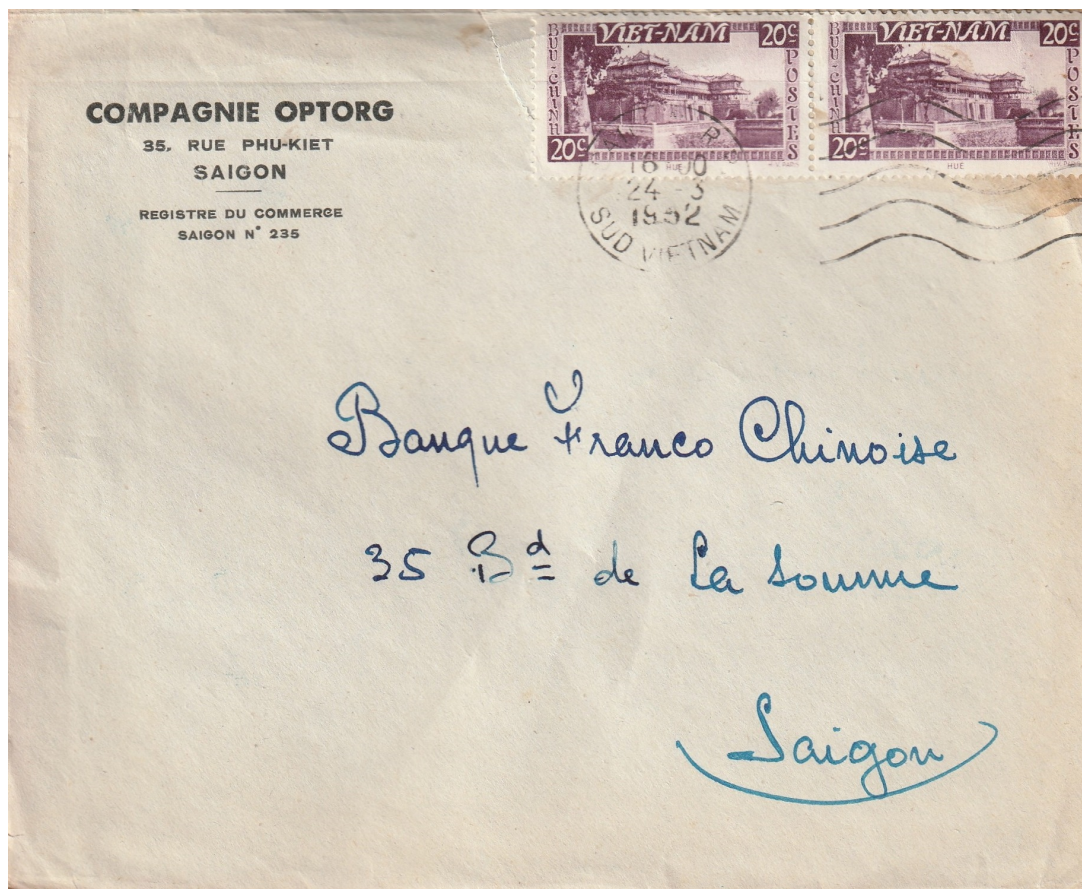 COMPAGNIE OPTORG
35, RUE PHU-KIET
SAIGON
REGISTRE DU COMMERCE
SAIGON N° 235
VIET-NAM 20c
BUU-CHINH
POSTES
20c
HUE
VIET-NAM 20c
BUU-CHINH
POSTES
20c
HUE
16 00
24 - 3
1952
SUD VIETNAM
Banque Franco Chinoise
35 Bd de La Somme
Saigon